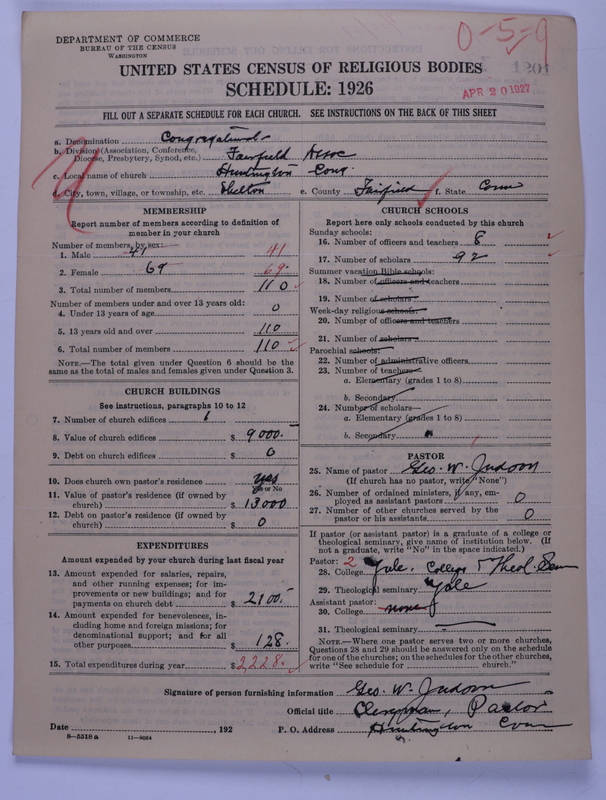 DEPARTMENT OF COMMERCE
BUREAU OF THE CENSUS
WASHINGTON
0-5-9
1201
APR 20 1927
UNITED STATES CENSUS OF RELIGIOUS BODIES
SCHEDULE: 1926
FILL OUT A SEPARATE SCHEDULE FOR EACH CHURCH. SEE INSTRUCTIONS ON THE BACK OF THIS SHEET
a. Denomination Congregational
b. Division (Association, Conference, Diocese, Presbytery, Synod, etc.) Fairfield Assoc
c. Local name of church Huntington Cong.
d. City, town, village, or township, etc. Shelton e. County Fairfield f. State Conn
MEMBERSHIP
Report number of members according to definition of
member in your church
Number of members, by sex:
1. Male 41 41
2. Female 69 69
3. Total number of members 110
Number of members under and over 13 years old:
4. Under 13 years of age 0
5. 13 years old and over 110
6. Total number of members 110
NOTE.—The total given under Question 6 should be the
same as the total of males and females given under Question 3.
CHURCH BUILDINGS
See instructions, paragraphs 10 to 12
7. Number of church edifices 1
8. Value of church edifices $ 9000.-
9. Debt on church edifices $ 0
10. Does church own pastor's residence? yes
Yes or No
11. Value of pastor's residence (if owned by
church) $ 13000
12. Debt on pastor's residence (if owned by
church) $ 0
EXPENDITURES
Amount expended by your church during last fiscal year
13. Amount expended for salaries, repairs,
and other running expenses; for im-
provements or new buildings; and for
payments on church debt $ 2100.-
14. Amount expended for benevolences, in-
cluding home and foreign missions; for
denominational support; and for all
other purposes $ 128.
15. Total expenditures during year $ 2228.
CHURCH SCHOOLS
Report here only schools conducted by this church
Sunday schools:
16. Number of officers and teachers 8
17. Number of scholars 92
Summer vacation Bible schools:
18. Number of officers and teachers
19. Number of scholars
Week-day religious schools:
20. Number of officers and teachers
21. Number of scholars
Parochial schools:
22. Number of administrative officers
23. Number of teachers—
a. Elementary (grades 1 to 8)
b. Secondary
24. Number of scholars—
a. Elementary (grades 1 to 8)
b. Secondary
PASTOR
25. Name of pastor Geo. W. Judson
(If church has no pastor, write "None")
26. Number of ordained ministers, if any, em-
ployed as assistant pastors 0
27. Number of other churches served by the
pastor or his assistants 0
If pastor (or assistant pastor) is a graduate of a college or
theological seminary, give name of institution below. (If
not a graduate, write "No" in the space indicated.)
Pastor: 2
28. College Yale. College & Theol. Sem
29. Theological seminary Yale
Assistant pastor:
30. College none
31. Theological seminary
NOTE.—Where one pastor serves two or more churches,
Questions 28 and 29 should be answered only on the schedule
for one of the churches; on the schedules for the other churches,
write "See schedule for church."
Signature of person furnishing information Geo. W. Judson
Official title Clergyman, Pastor
Date , 192 P. O. Address Huntington Conn
8—5518 a 11—9054